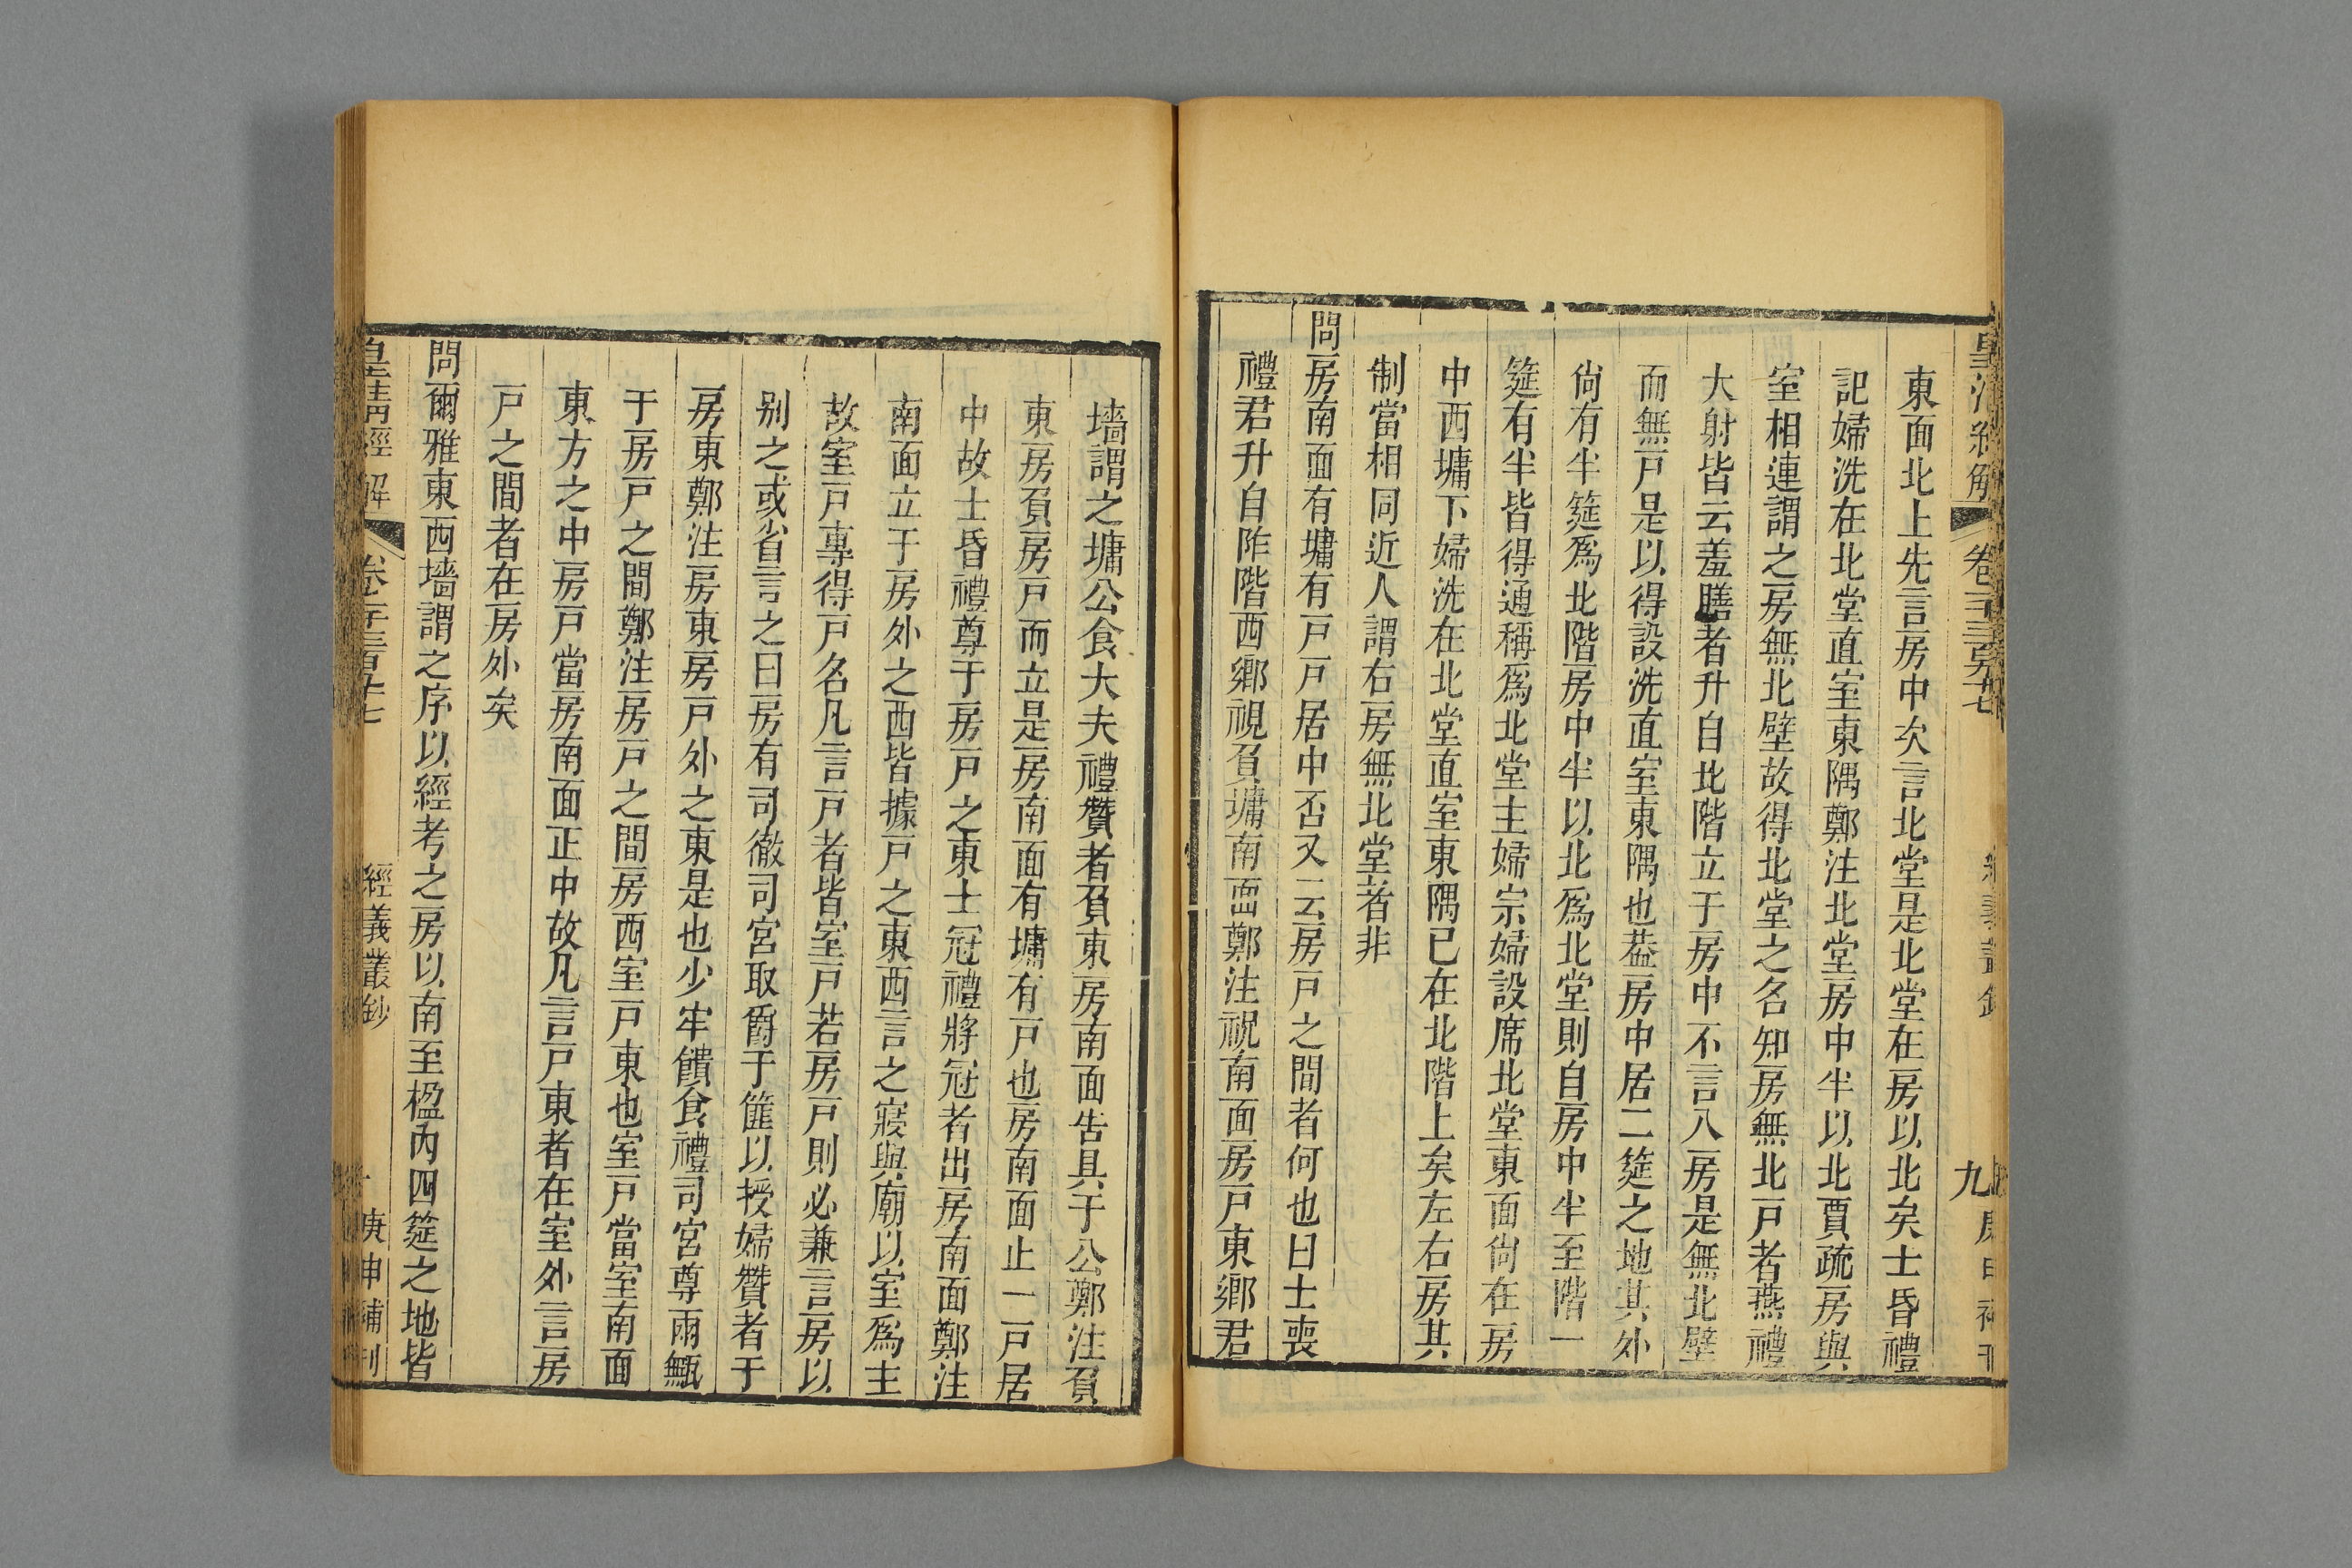 東面北上先言房中次言北堂是北堂在房以北矣士昏禮
記婦洗在北堂直室東隅鄭注北堂房中半以北賈疏房與
室相連謂之房無北壁故得北堂之名知房無北戸者燕禮
大射皆云羞膳者升自北階立于房中不言入房是無北壁
而無戸是以得設洗直室東隅也葢房中居二筵之地其外
尙有半筵爲北階房中半以北爲北堂則自房中半至階一
筵有半皆得通稱爲北堂主婦宗婦設席北堂東面尙在房
中西墉下婦洗在北堂直室東隅已在北階上矣左右房其
制當相同近人謂右房無北堂者非
問房南面有墉有戸戸居中否又云房戸之間者何也曰士喪
禮君升自阼階西鄉視負墉南面鄭注祝南面房戸東鄉君
墻謂之墉公食大夫禮贊者負東房南面告具于公鄭注負
東房負房戸而立是房南面有墉有戸也房南面止一戸居
中故士昏禮尊于房戸之東士冠禮將冠者出房南面鄭注
南面立于房外之西皆據戸之東西言之寢與廟以室爲主
故室戸專得戸名凡言戸者皆室戸若房戸則必兼言房以
别之或省言之曰房有司徹司宮取爵于篚以授婦贊者于
房東鄭注房東房戸外之東是也少牢饋食禮司宮尊兩甒
于房戸之間鄭注房戸之間房西室戸東也室戸當室南面
東方之中房戸當房南面正中故凡言戸東者在室外言房
戸之間者在房外矣
問爾雅東西墻謂之序以經考之房以南至楹內四筵之地皆
皇淸經解
經義叢鈔
庚申補刊
九